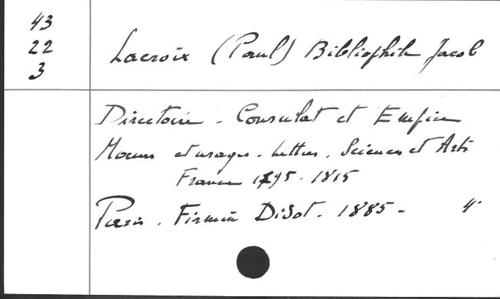 43
22
3
Lacroix (Paul) Bibliophile Jacob
Directoire - Consulat et Empire
Moeurs et usages - lettres - Sciences et Arts
France 1795 - 1815
Paris - Firmin Didot - 1885 - 4°